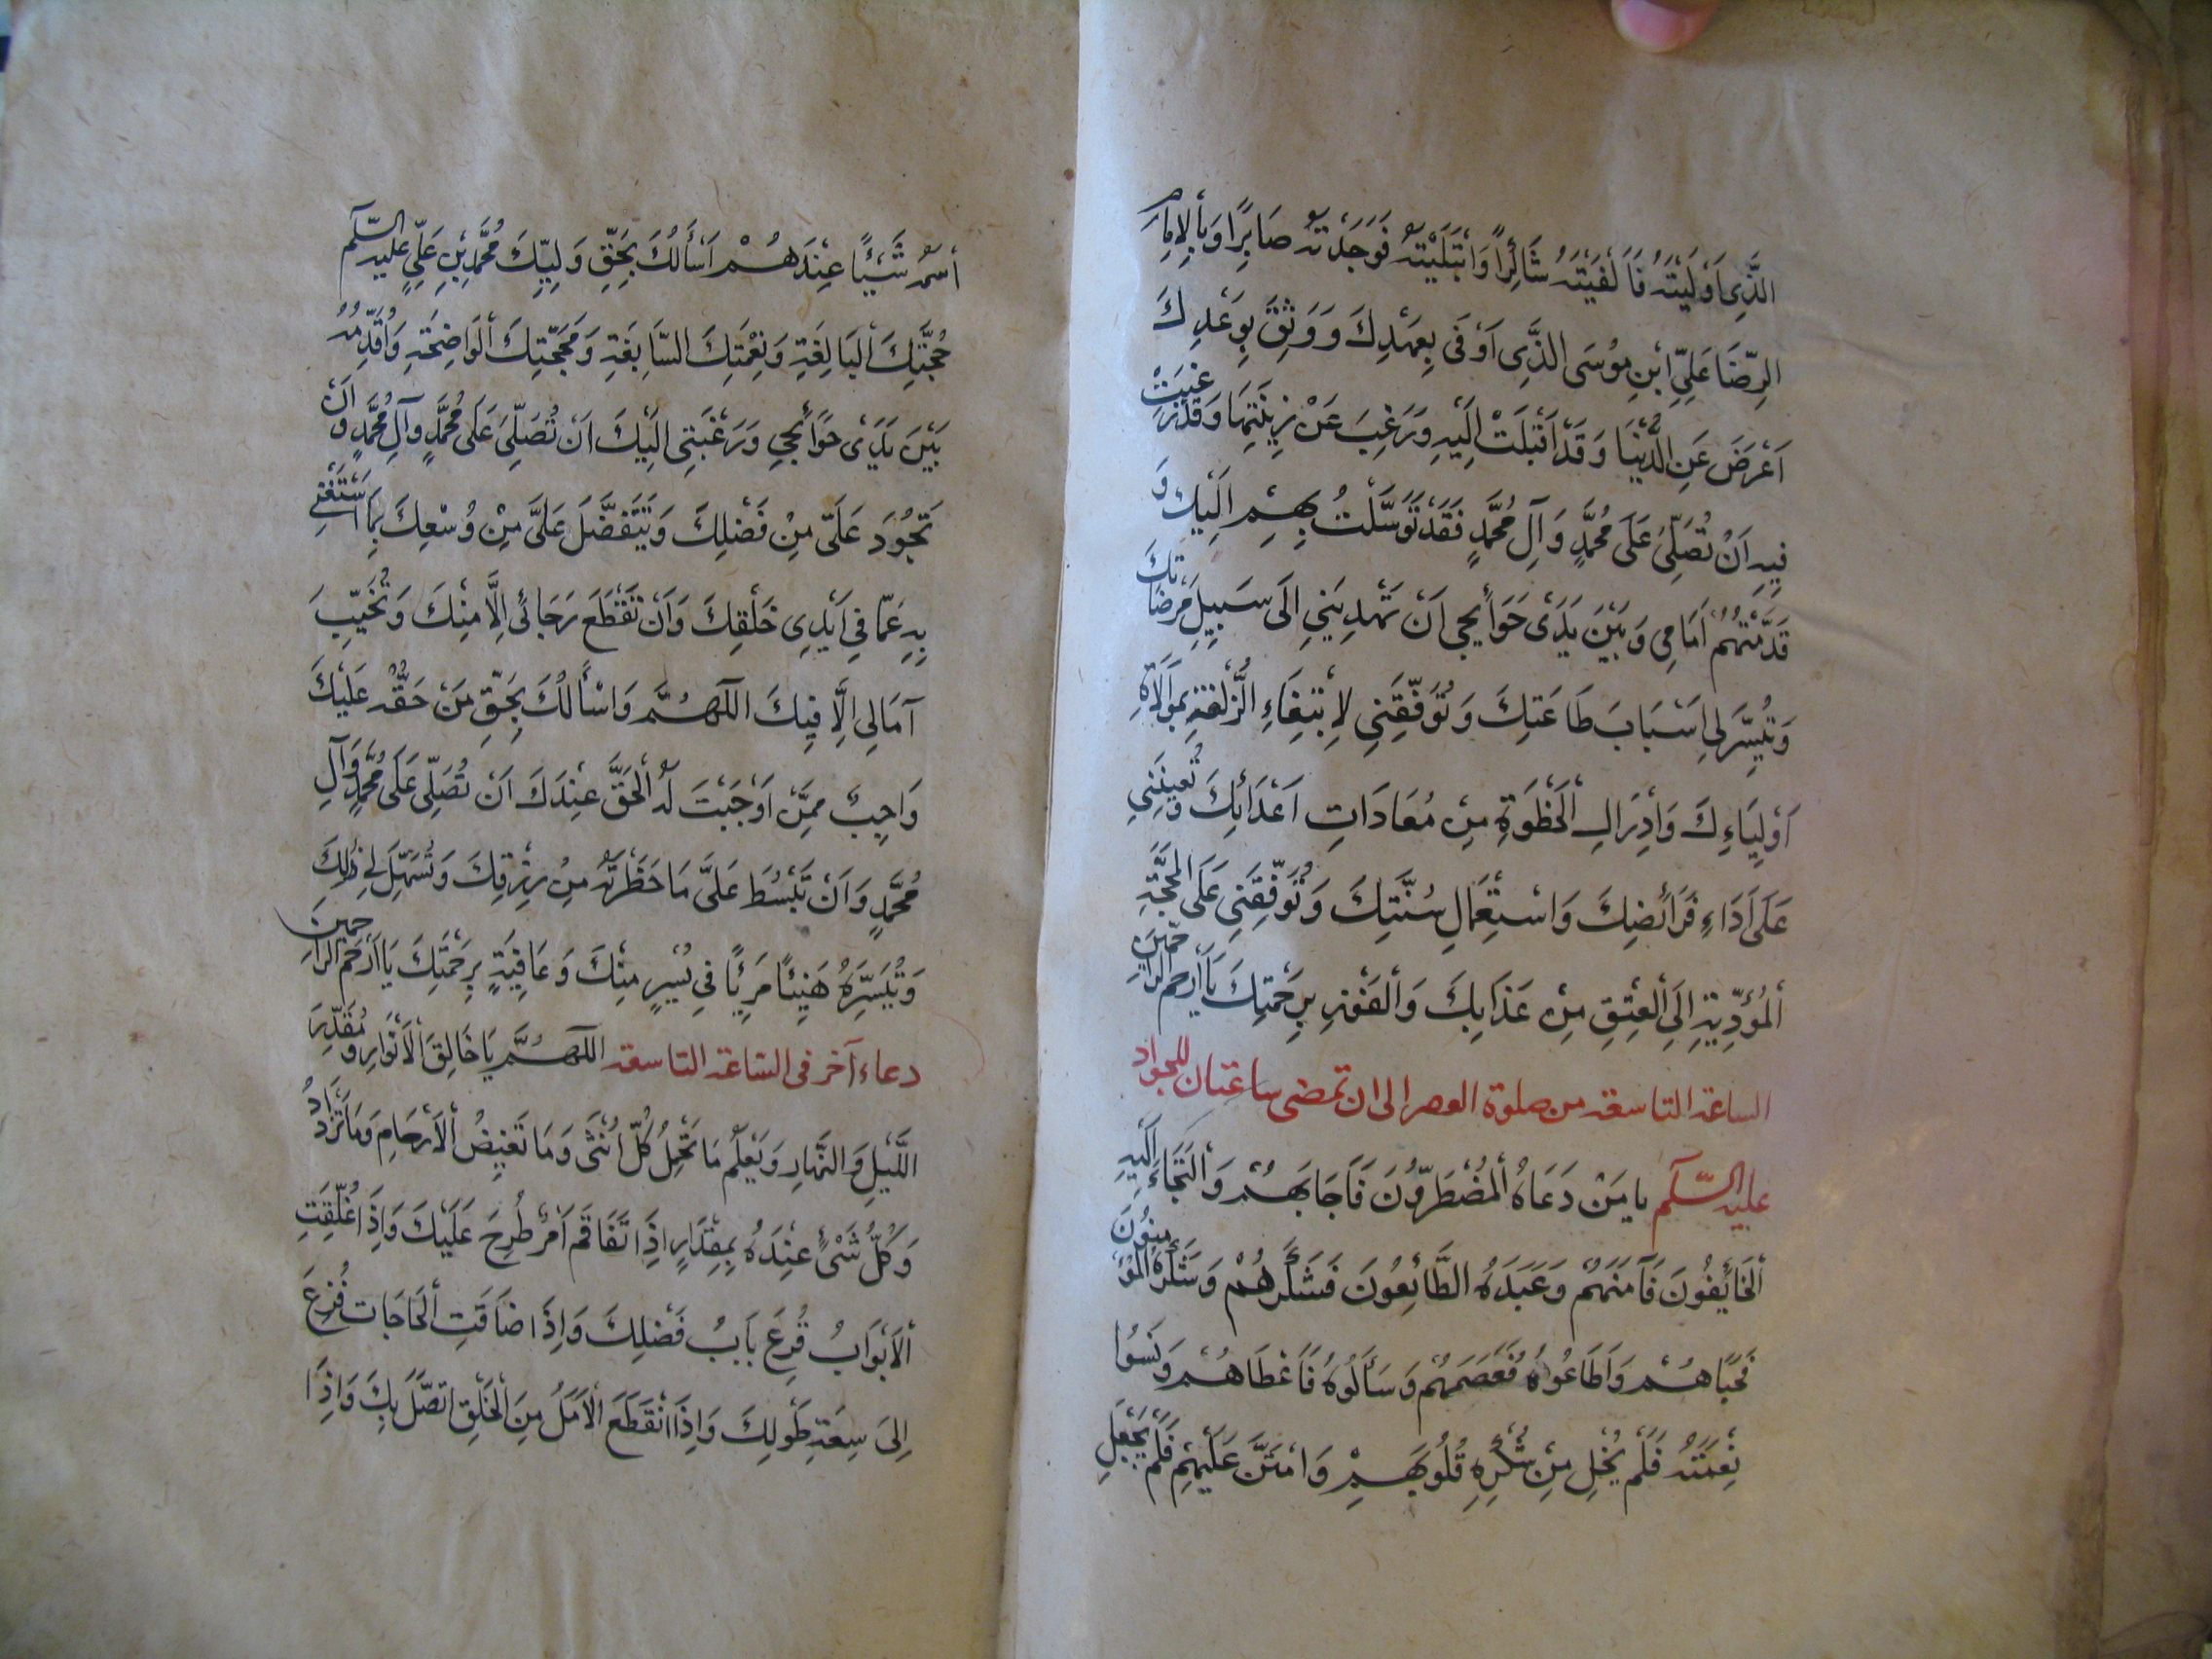 الَّذِي اَوْلَيْتَهُ فَاَلْفَيْتَهُ شَاكِرًا وَابْتَلَيْتَهُ فَوَجَدْتَهُ صَابِرًا وَبِالْاِمَامِ
الرِّضَا عَلِيِّ ابْنِ مُوسَى الَّذِي اَوْفَى بِعَهْدِكَ وَوَثِقَ بِوَعْدِكَ
اَعْرَضَ عَنِ الدُّنْيَا وَقَدْ اَقْبَلَتْ اِلَيْهِ وَرَغِبَ عَنْ زِينَتِهَا وَقَدْ رَغِبَتْ
فِيهِ اَنْ تُصَلِّيَ عَلَى مُحَمَّدٍ وَآلِ مُحَمَّدٍ فَقَدْ تَوَسَّلْتُ بِهِمْ اِلَيْكَ وَ
قَدَّمْتُهُمْ اَمَامِي وَبَيْنَ يَدَيْ حَوَائِجِي اَنْ تَهْدِيَنِي اِلَى سَبِيلِ مَرْضَاتِكَ
وَتُيَسِّرَ لِي اَسْبَابَ طَاعَتِكَ وَتُوَفِّقَنِي لِابْتِغَاءِ الزُّلْفَةِ بِمُوَالَاةِ
اَوْلِيَاءِكَ وَاِدْرَاكِ الْحَظْوَةِ مِنْ مُعَادَاتِ اَعْدَائِكَ وَتُعِينَنِي
عَلَى اَدَاءِ فَرَائِضِكَ وَاسْتِعْمَالِ سُنَّتِكَ وَتُوَفِّقَنِي عَلَى الْمَحَجَّةِ
الْمُؤَدِّيَةِ اِلَى الْعِتْقِ مِنْ عَذَابِكَ وَالْفَوْزِ بِرَحْمَتِكَ يَا اَرْحَمَ الرَّاحِمِينَ
الساعة التاسعة من صلوة العصر الى ان تمضى ساعتان للجواد
عليه السّلم يا مَنْ دَعَاهُ الْمُضْطَرُّونَ فَاَجَابَهُمْ وَالْتَجَاَءَ اِلَيْهِ
الْخَايِفُونَ فَآمَنَهُمْ وَعَبَدَهُ الطَّائِعُونَ فَشَكَرَهُمْ وَشَكَرَهُ الْمُؤْمِنُونَ
فَحَبَاهُمْ وَاَطَاعُوهُ فَعَصَمَهُمْ وَسَأَلُوهُ فَاَعْطَاهُمْ وَنَسُوا
نِعْمَتَهُ فَلَمْ يُخْلِ مِنْ شُكْرِهِ قُلُوبَهُمْ وَامْتَنَّ عَلَيْهِمْ فَلَمْ يَجْعَلِ
اسْمَهُ شَيْئًا عِنْدَهُمْ اَسْأَلُكَ بِحَقِّ وَلِيِّكَ مُحَمَّدِ بْنِ عَلِيٍّ عليه السّلم
حُجَّتِكَ الْبَالِغَةِ وَنِعْمَتِكَ السَّابِغَةِ وَمَحَجَّتِكَ الْوَاضِحَةِ وَاُقَدِّمُهُ
بَيْنَ يَدَيْ حَوَائِجِي وَرَغْبَتِي اِلَيْكَ اَنْ تُصَلِّيَ عَلَى مُحَمَّدٍ وَآلِ مُحَمَّدٍ وَاَنْ
تَجُودَ عَلَيَّ مِنْ فَضْلِكَ وَتَتَفَضَّلَ عَلَيَّ مِنْ وُسْعِكَ بِمَا اَسْتَغْنِي
بِهِ عَمَّا فِي اَيْدِي خَلْقِكَ وَاَنْ تَقْطَعَ رَجَائِي اِلَّا مِنْكَ وَتُخَيِّبَ
آمَالِي اِلَّا فِيكَ اللّهُمَّ وَاَسْأَلُكَ بِحَقِّ مَنْ حَقُّهُ عَلَيْكَ
وَاجِبٌ مِمَّنْ اَوْجَبْتَ لَهُ الْحَقَّ عِنْدَكَ اَنْ تُصَلِّيَ عَلَى مُحَمَّدٍ وَآلِ
مُحَمَّدٍ وَاَنْ تَبْسُطَ عَلَيَّ مَا حَظَرْتَهُ مِنْ رِزْقِكَ وَتُسَهِّلَ لِي ذٰلِكَ
وَتُيَسِّرَهُ هَنِيئًا مَرِيئًا فِي يُسْرٍ مِنْكَ وَعَافِيَةٍ بِرَحْمَتِكَ يَا اَرْحَمَ الرَّاحِمِينَ
دعاء آخر فى الساعة التاسعة اللّهُمَّ يَا خَالِقَ الْاَنْوَارِ وَمُقَدِّرَ
اللَّيْلِ وَالنَّهَارِ وَيَعْلَمُ مَا تَحْمِلُ كُلُّ اُنْثَى وَمَا تَغِيضُ الْاَرْحَامُ وَمَا تَزْدَادُ
وَكُلُّ شَيْءٍ عِنْدَهُ بِمِقْدَارٍ اِذَا تَفَاقَمَ اَمْرٌ طُرِحَ عَلَيْكَ وَاِذَا غُلِّقَتِ
الْاَبْوَابُ قُرِعَ بَابُ فَضْلِكَ وَاِذَا ضَاقَتِ الْحَاجَات فُزِعَ
اِلَى سِعَةِ طَوْلِكَ وَاِذَا انْقَطَعَ الْاَمَلُ مِنَ الْخَلْقِ اتَّصَلَ بِكَ وَاِذَا